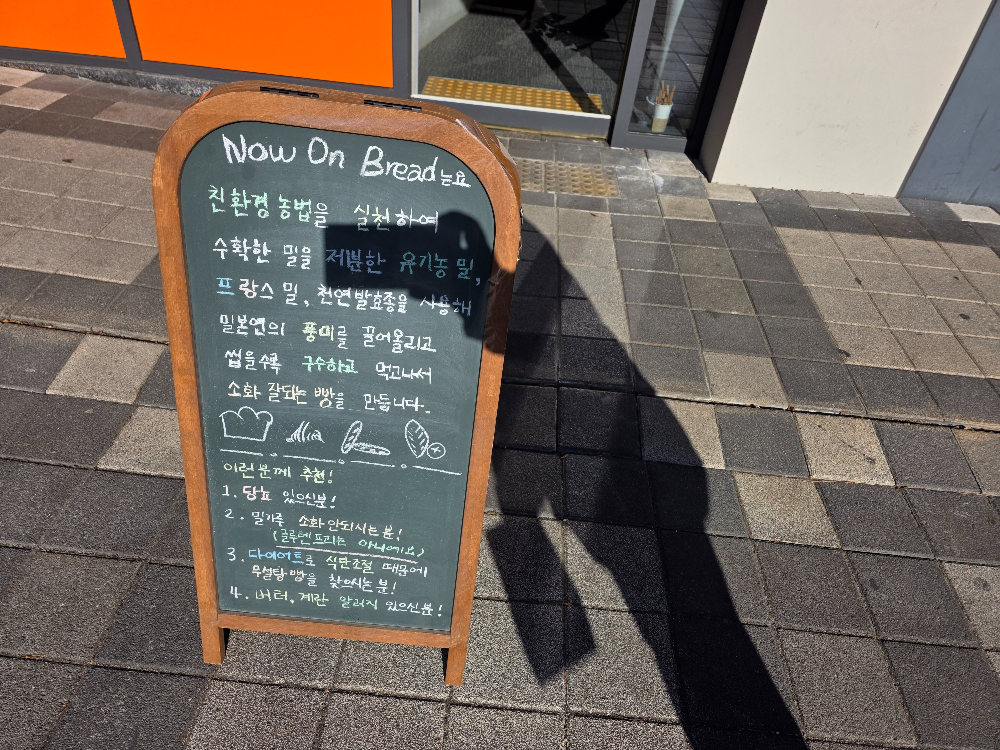 Now On Bread는요
친환경 농법을 실천하여
수확한 밀을 제분한 유기농 밀,
프랑스 밀, 천연발효종을 사용해
밀본연의 풍미를 끌어올리고
씹을수록 구수하고 먹고나서
소화 잘되는 빵을 만듭니다.
이런분께 추천!
1. 당뇨 있으신분!
2. 밀가루 소화 안되시는 분!
(글루텐프리는 아니에요)
3. 다이어트로 식단조절 때문에
무설탕 빵을 찾으시는 분!
4. 버터, 계란 알러지 있으신 분!